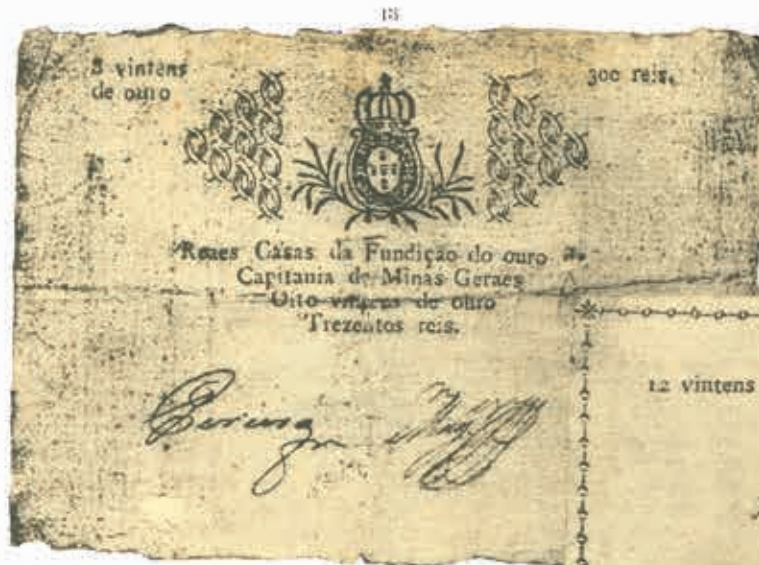 18
8 vintens
de ouro
300 reis.
Reaes Casas da Fundição do ouro
Capitania de Minas Geraes
Oito vintens de ouro
Trezentos reis.
12 vintens